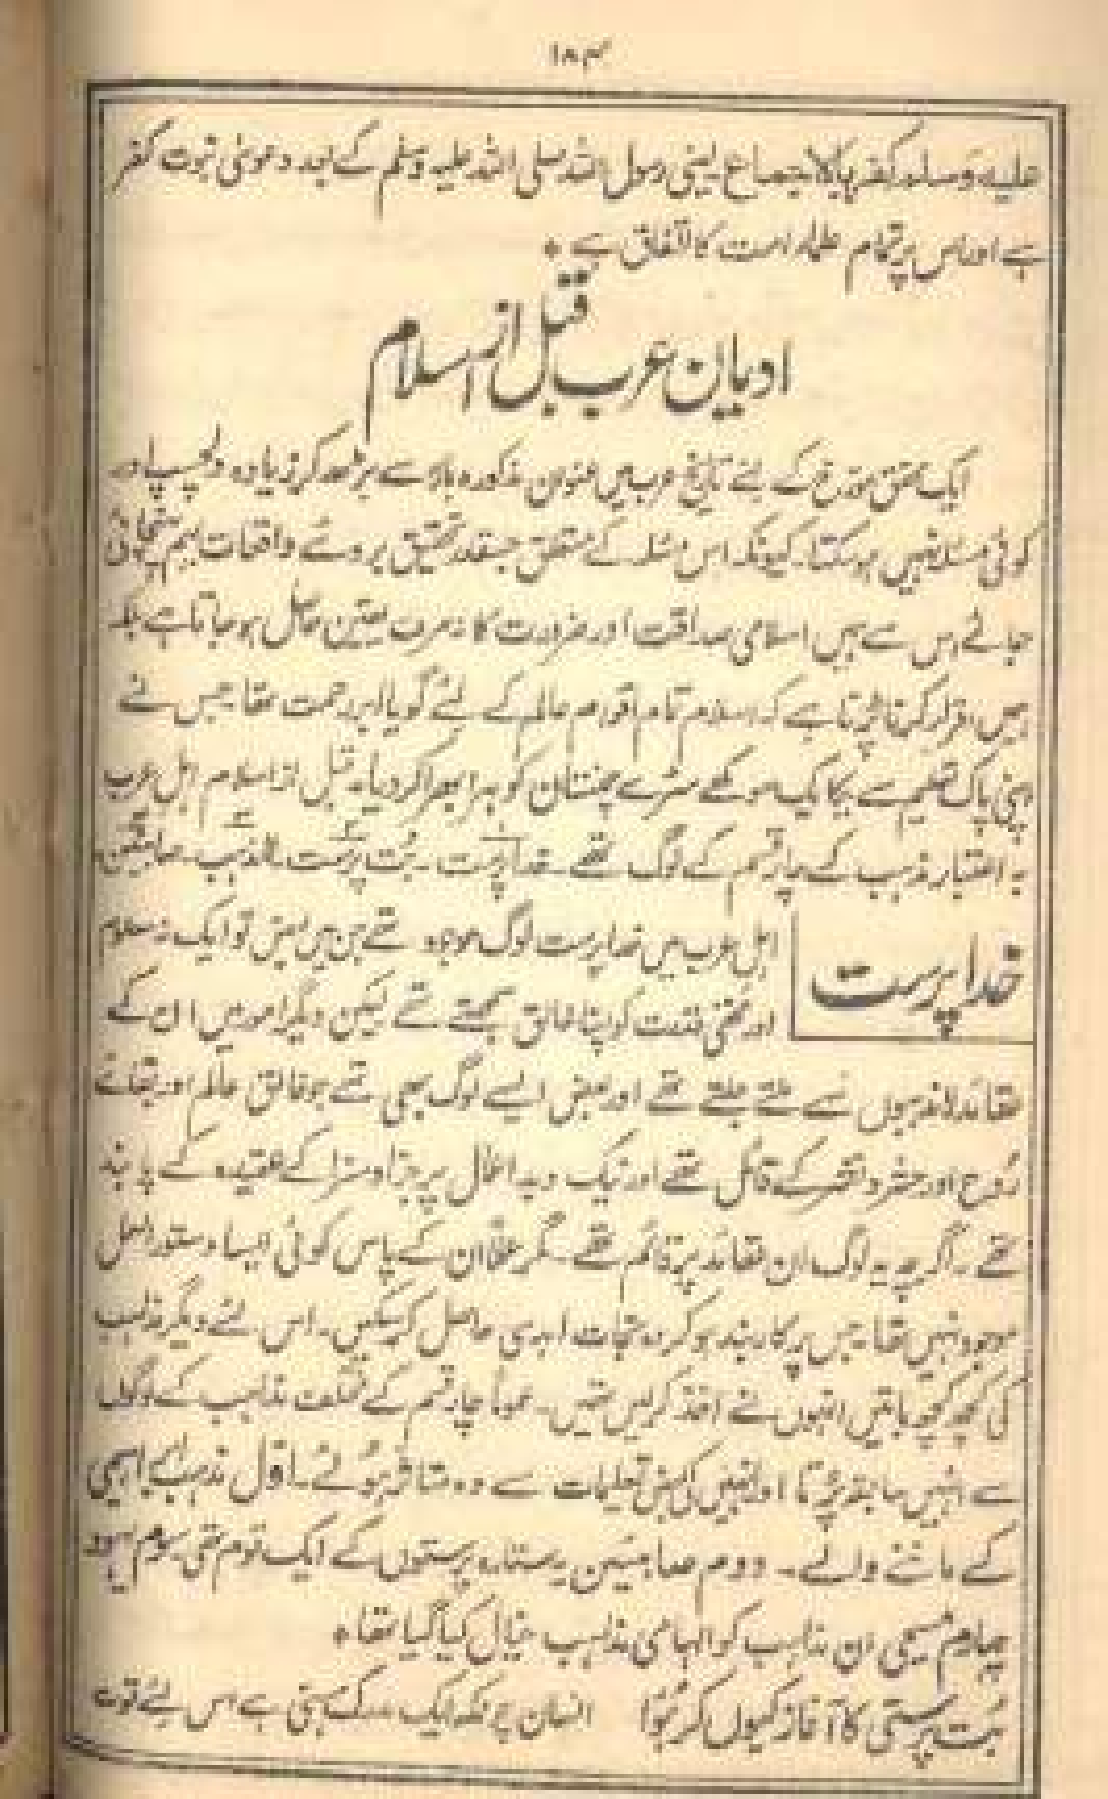 ۱۸۳
علیہ وسلم کفر بالاجماع یعنی رسول اللہ صلی اللہ علیہ وسلم کے بعد دعوئی نبوت کفر
ہے اور اس پر تمام علماء امت کا اتفاق ہے ٭
ادیان عرب قبل از اسلام
ایک محقق مورخ کے لئے تاریخ عرب میں عنوان مذکورہ بالا سے بڑھ کر زیادہ دلچسپ اور
کوئی مسئلہ نہیں ہو سکتا۔ کیونکہ اس مسئلہ کے متعلق جسقدر تحقیق بروئے واقعات بہم پہنچائی
جائے اس سے ہمیں اسلامی صداقت اور ضرورت کا نہ صرف یقین حاصل ہو جاتا ہے بلکہ
ہمیں اقرار کرنا پڑتا ہے کہ اسلام تمام اقوام عالم کے لئے گویا ابر رحمت تھا جس نے
اپنی پاک تعلیم سے یکایک سوکھے سڑے چمنستان کو ہرا بھرا کر دیا۔ قبل از اسلام اہل عرب
بہ اعتبار مذہب کے چار قسم کے لوگ تھے۔ خدا پرست۔ بت پرست۔ لامذہب۔ صابئین
خدا پرست
اہل عرب میں خدا پرست لوگ موجود تھے جن میں بعض تو ایک نہ معلوم
اور مخفی قدرت کو اپنا خالق سمجھتے تھے لیکن دیگر امور میں ان کے
عقائد لامذہبوں سے ملتے جلتے تھے اور بعض ایسے لوگ بھی تھے جو خالق عالم اور بقائے
روح اور حشر و نشر کے قائل تھے اور نیک و بد اعمال پر جزا و سزا کے عقیدہ کے پابند
تھے۔ اگرچہ یہ لوگ ان عقائد پر قائم تھے۔ مگر عملاً ان کے پاس کوئی ایسا دستور العمل
موجود نہیں تھا جس پر کاربند ہو کر وہ نجات ابدی حاصل کر سکیں۔ اس لئے دیگر مذاہب
کی کچھ کچھ باتیں انہوں نے اخذ کر لیں تھیں۔ عموماً چار قسم کے مختلف مذاہب کے لوگوں
سے انہیں سابقہ پڑتا اور انہیں کی بعض تعلیمات سے وہ متاثر ہوئے۔ اول مذہب ابراہیمی
کے ماننے والے۔ دوم صابئین یہ ستارہ پرستوں کے ایک قوم تھی سوم یہود
چہارم مسیحی ان مذاہب کو الہامی مذاہب خیال کیا گیا تھا ٭
بت پرستی کا آغاز کیوں کر ہوا انسان چونکہ ایک مدرک ہستی ہے اس لئے قوت